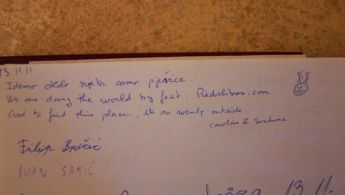 13.11.11
Idemo okolo svijeta samo pješice.
We are doing the world by feet. Piedolibros.com
Good to find this place, it's so windy outside.
Caroline &
Filip
IVAN SAKIĆ
13.11.